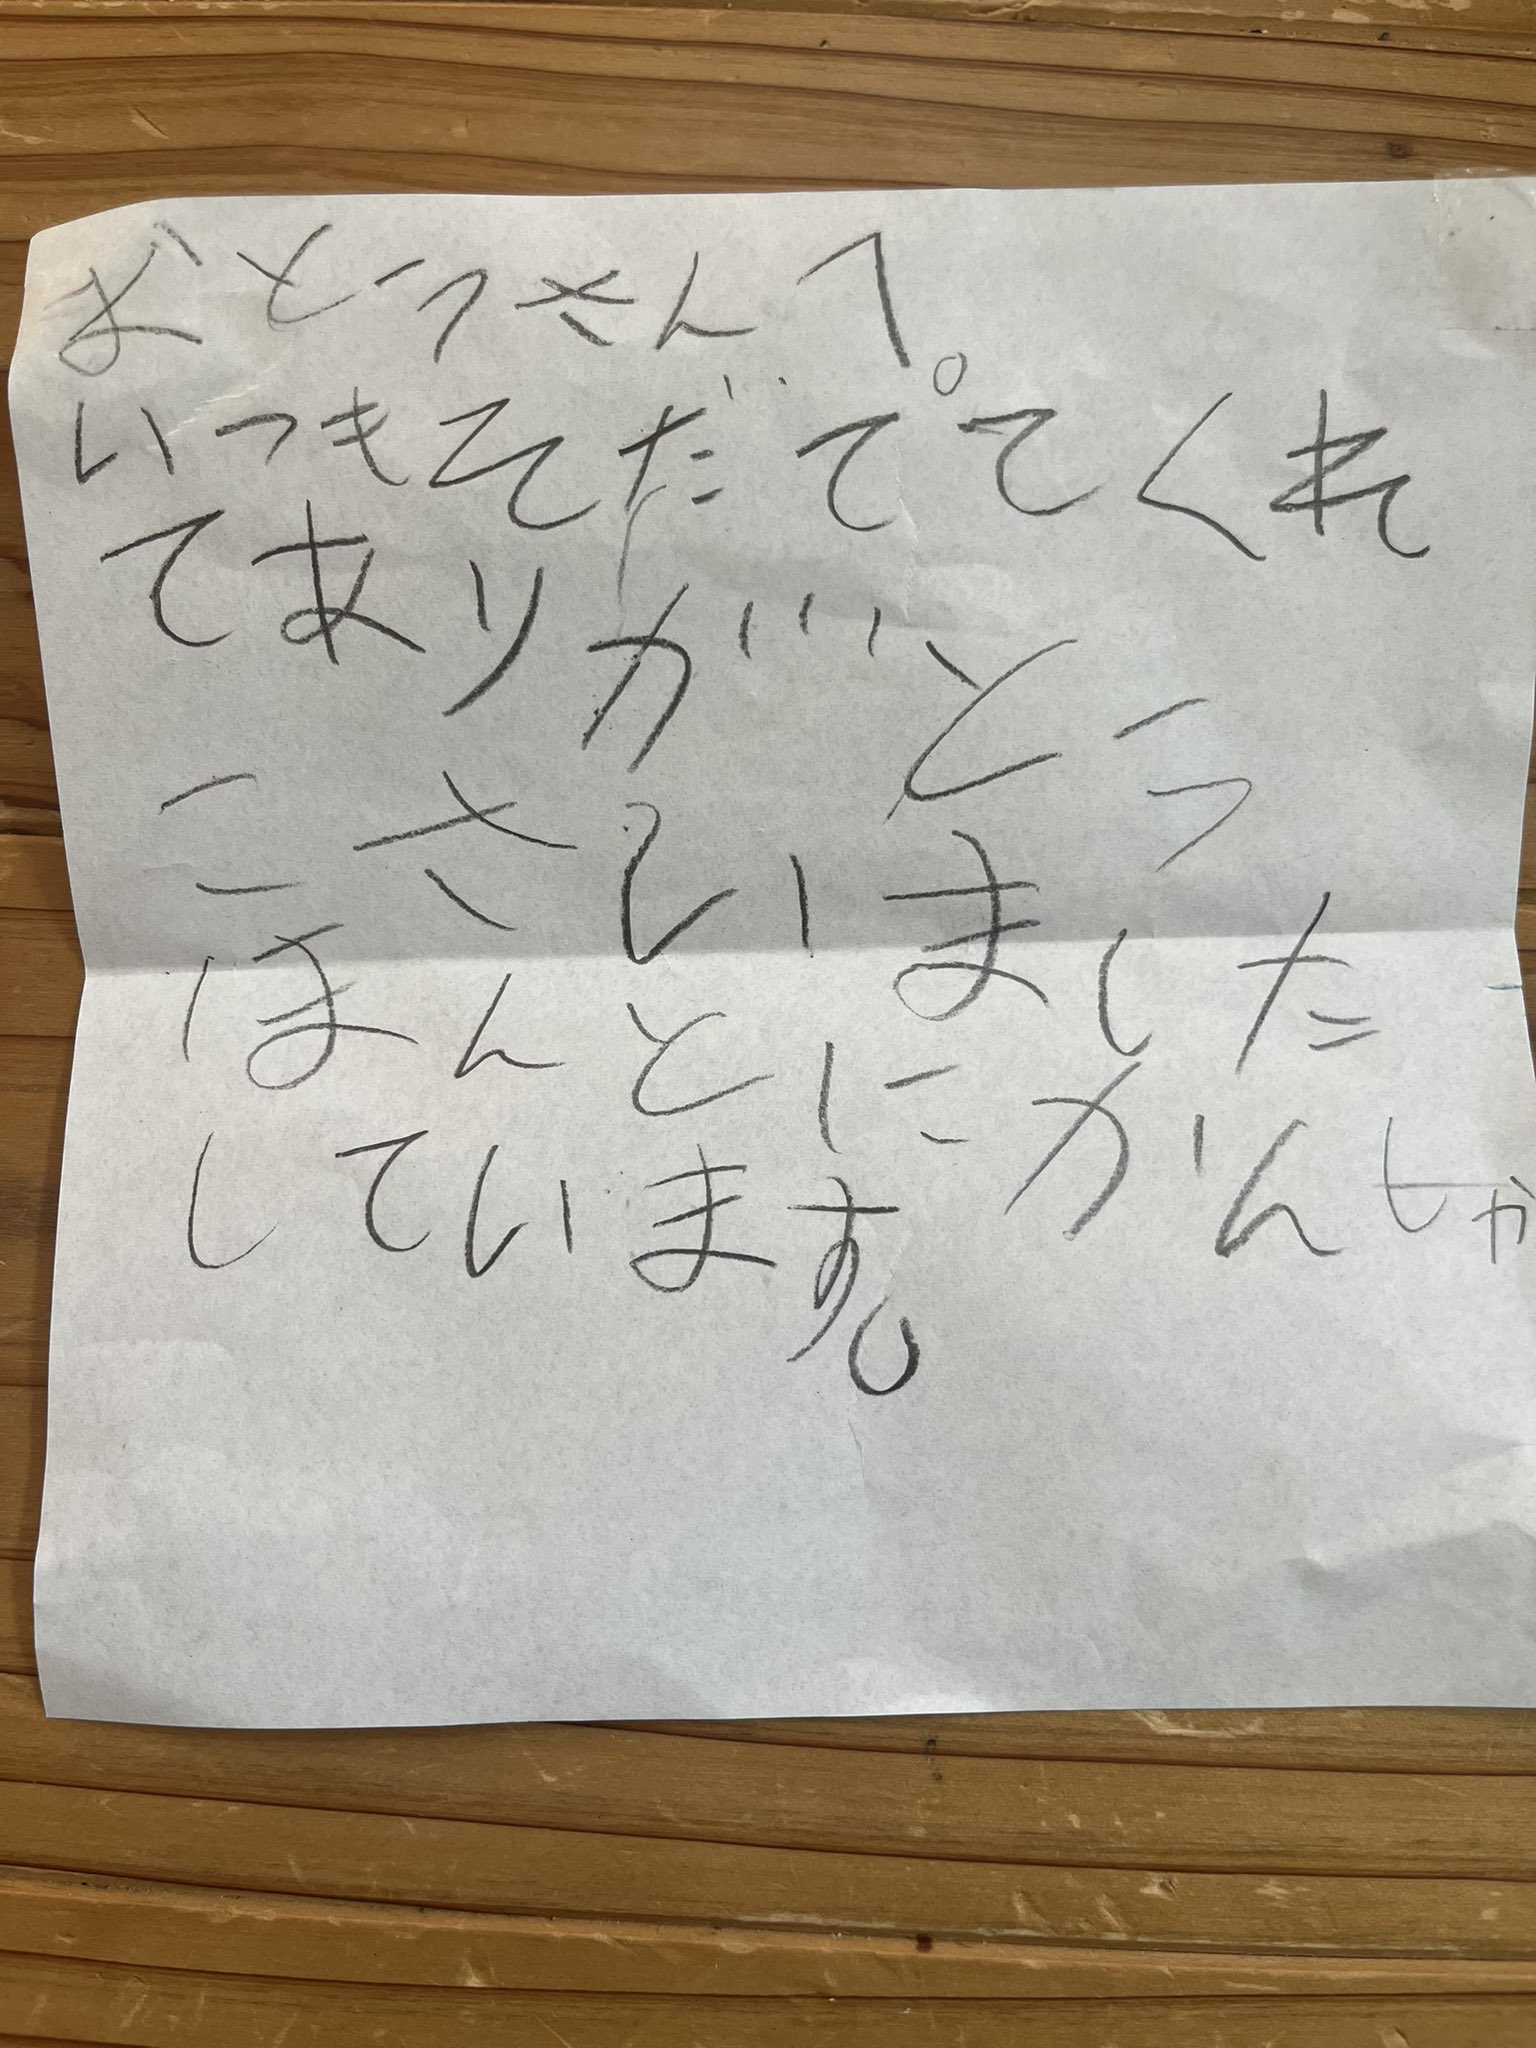 おとうさんへ。
いつもそだててくれ
てありがとう
こさいました
ほんとにかんしゃ
しています。